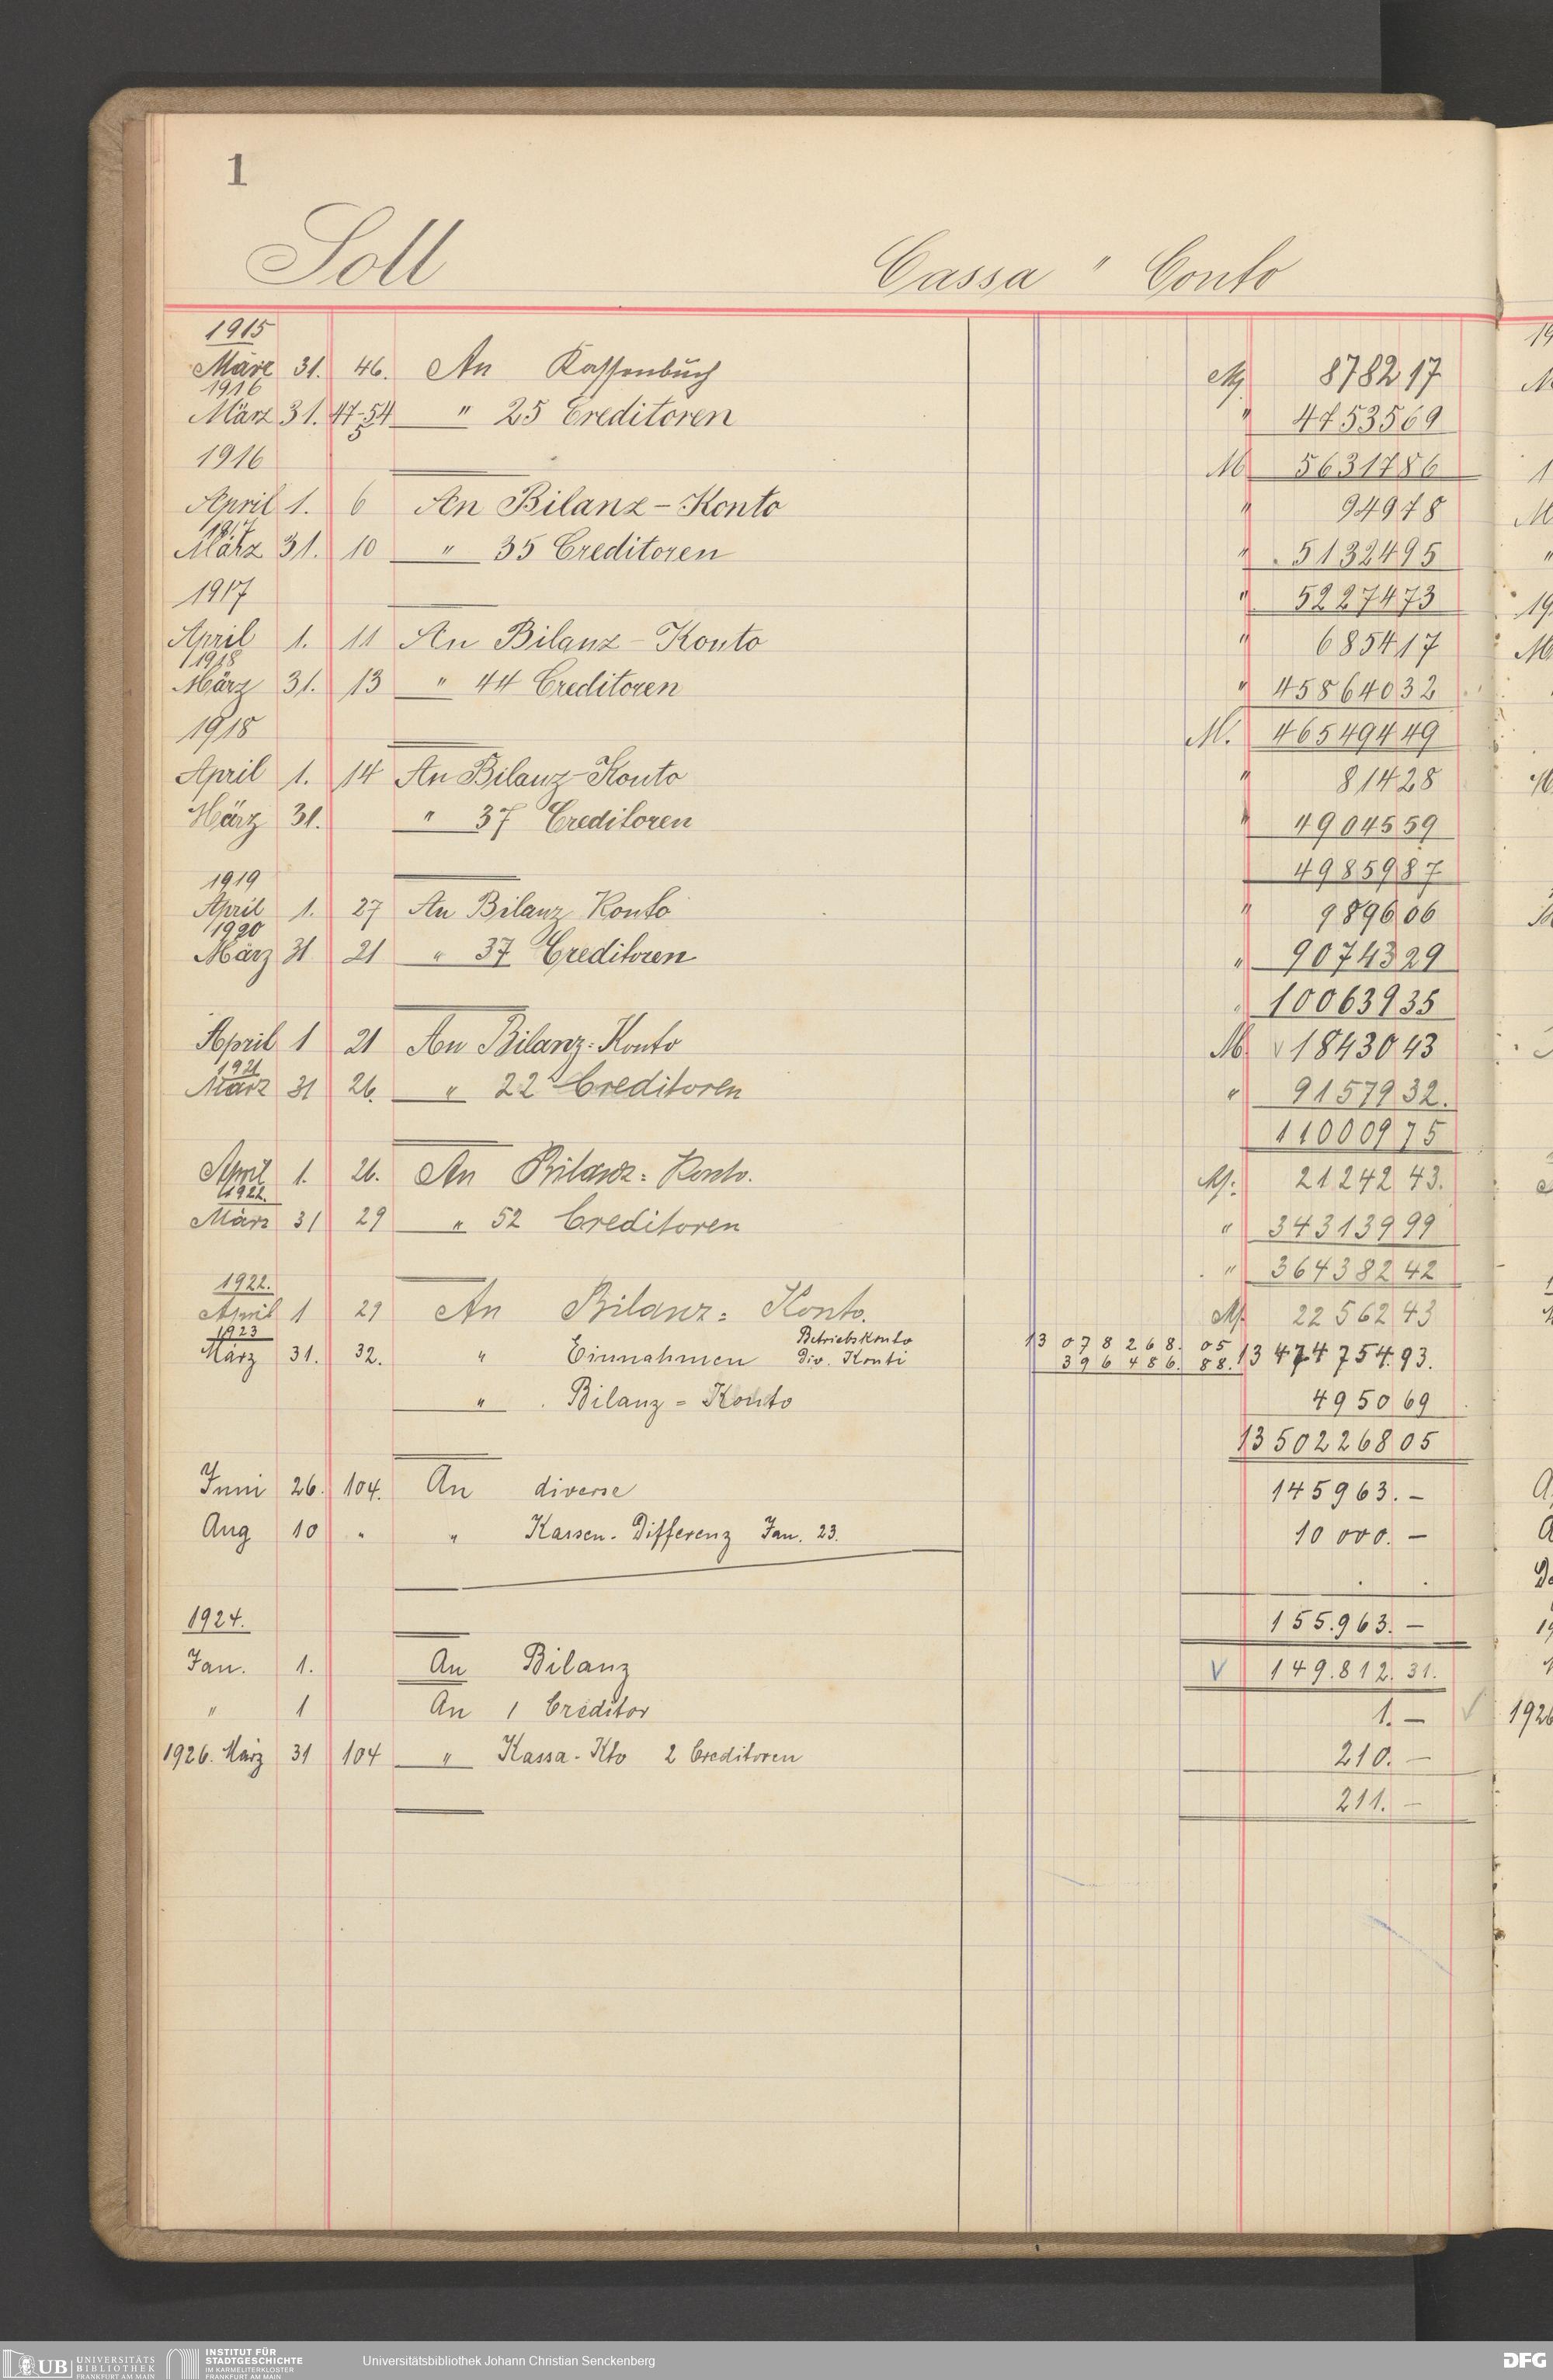 1
Soll Cassa " Conto
1915
März 31. 46. An Kassenbuch M 8782 17
1916
März 31. 47-54 " 25 Creditoren " 47535 69
5
1916 M 56317 86
April 1. 6 An Bilanz-Konto " 949 78
1917
März 31. 10 " 35 Creditoren " 51324 95
1917 " 52274 73
April 1. 11 An Bilanz-Konto " 6854 17
1918
März 31. 13 " 44 Creditoren " 458640 32
1918 M. 465494 49
April 1. 14 An Bilanz-Konto " 814 28
März 31. " 37 Creditoren " 49045 59
49859 87
1919
April 1. 27 An Bilanz Konto " 9896 06
1920
März 31 21 " 37 Creditoren " 90743 29
" 100639 35
April 1 21 An Bilanz-Konto M V 18430 43
1921
März 31 26. " 22 Creditoren " 91579 32.
110009 75
April 1. 26. An Bilanz-Konto. M. 21242 43.
1922.
März 31 29 " 52 Creditoren " 343139 99
" 364382 42
1922.
April 1 29 An Bilanz-Konto. M 22562 43
1923
März 31. 32. " Einnahmen Betriebskonto 13 078 268. 05
Div. Konti 396 486. 88. 13 474 754. 93.
" Bilanz-Konto 4950 69
13502268 05
Juni 26. 104. An diverse 145963. –
Aug 10 " " Kassen-Differenz Jan. 23. 10 000. –
1924. 155.963. –
Jan. 1. An Bilanz V 149.812. 31.
" 1 An 1 Creditor 1. –
1926. März 31 104 " Kassa-Kto 2 Creditoren 210. –
211. –
UB UNIVERSITÄTS
BIBLIOTHEK
FRANKFURT AM MAIN
INSTITUT FÜR
STADTGESCHICHTE
IM KARMELITERKLOSTER
FRANKFURT AM MAIN
Universitätsbibliothek Johann Christian Senckenberg
DFG